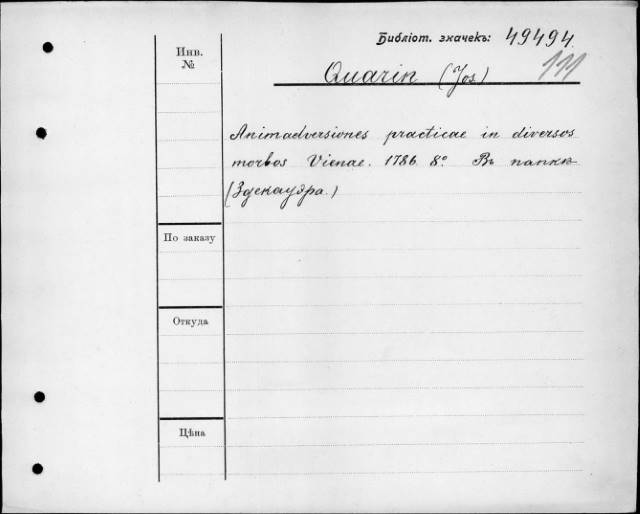 Библіот. значекъ: 49494.
Инв.
№
Quarin (Jos.)
Animadversiones practicae in diversos
morbos Vienae. 1786. 8°. Въ папкѣ
(Здекауэра.)
По заказу
Откуда
Цѣна